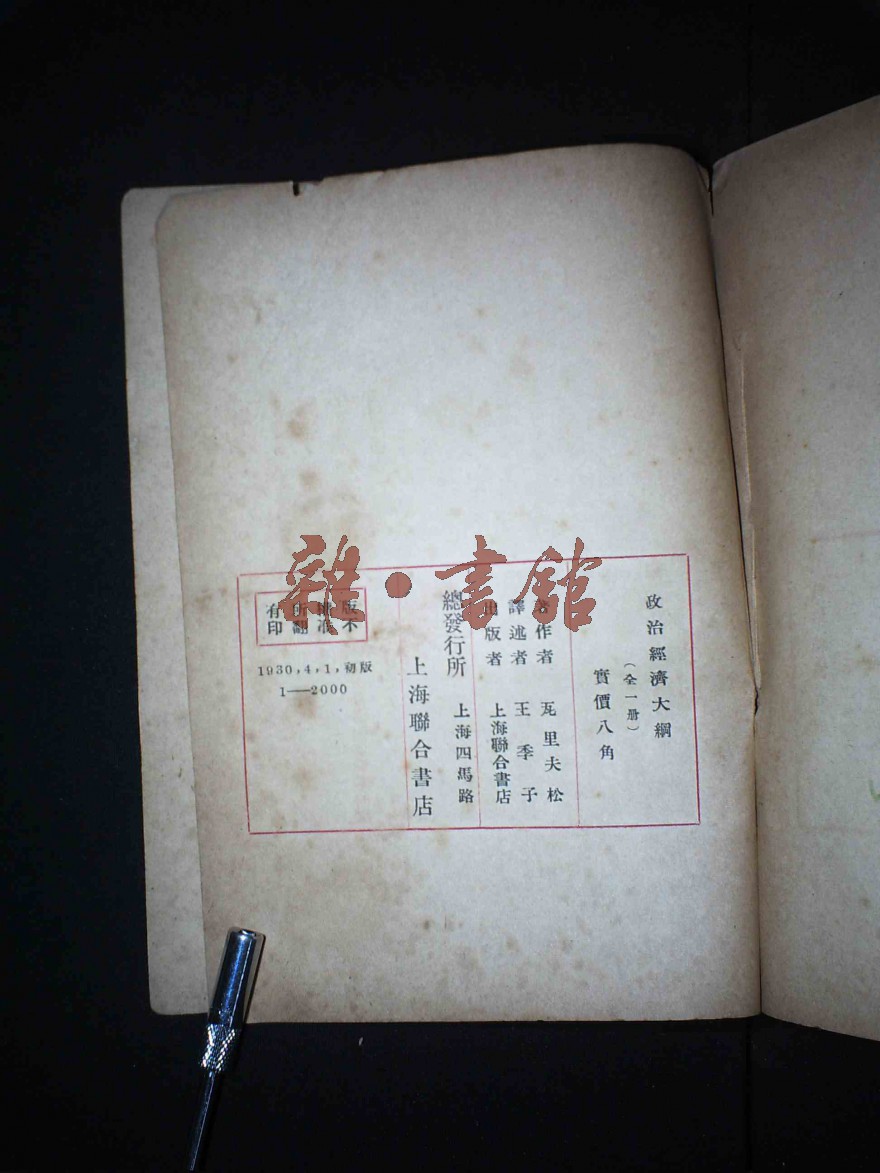 政治經濟大綱
（全一册）
實價八角
著作者 瓦里夫松
譯述者 王季子
出版者 上海聯合書店
總發行所 上海四馬路
上海聯合書店
版權所有
不准翻印
1930,4,1,初版
1—2000
雜·書館